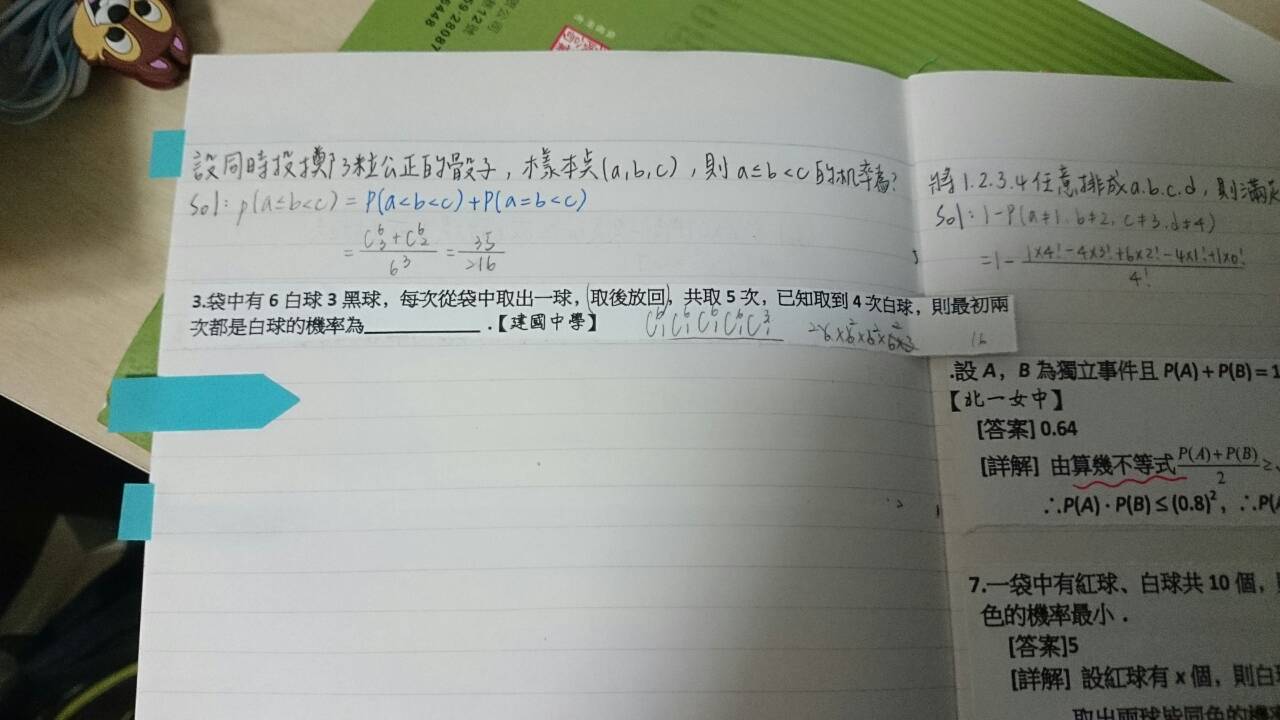 59 28087
6448
設同時投擲3粒公正的骰子，樣本点(a,b,c)，則a≤b<c的机率為?
Sol: p(a≤b<c) = P(a<b<c)+P(a=b<c)
= \frac{C^6_3+C^6_2}{6^3} = \frac{35}{216}
3.袋中有 6 白球 3 黑球，每次從袋中取出一球，(取後放回)，共取 5 次，已知取到 4 次白球，則最初兩
次都是白球的機率為____________ .【建國中學】
將1.2.3.4任意排成a.b.c.d，則滿足
Sol: 1-P(a≠1.b≠2.c≠3.d≠4)
=1-\frac{1×4!-4×3!+6×2!-4×1!+1×0!}{4!}
.設 A，B 為獨立事件且 P(A)+P(B)=1
【北一女中】
[答案] 0.64
[詳解] 由算幾不等式\frac{P(A)+P(B)}{2}≥
∴P(A)·P(B)≤(0.8)²，∴P(A
7.一袋中有紅球、白球共 10 個，
色的機率最小．
[答案]5
[詳解] 設紅球有 x 個，則白
取出兩球皆同色的機率